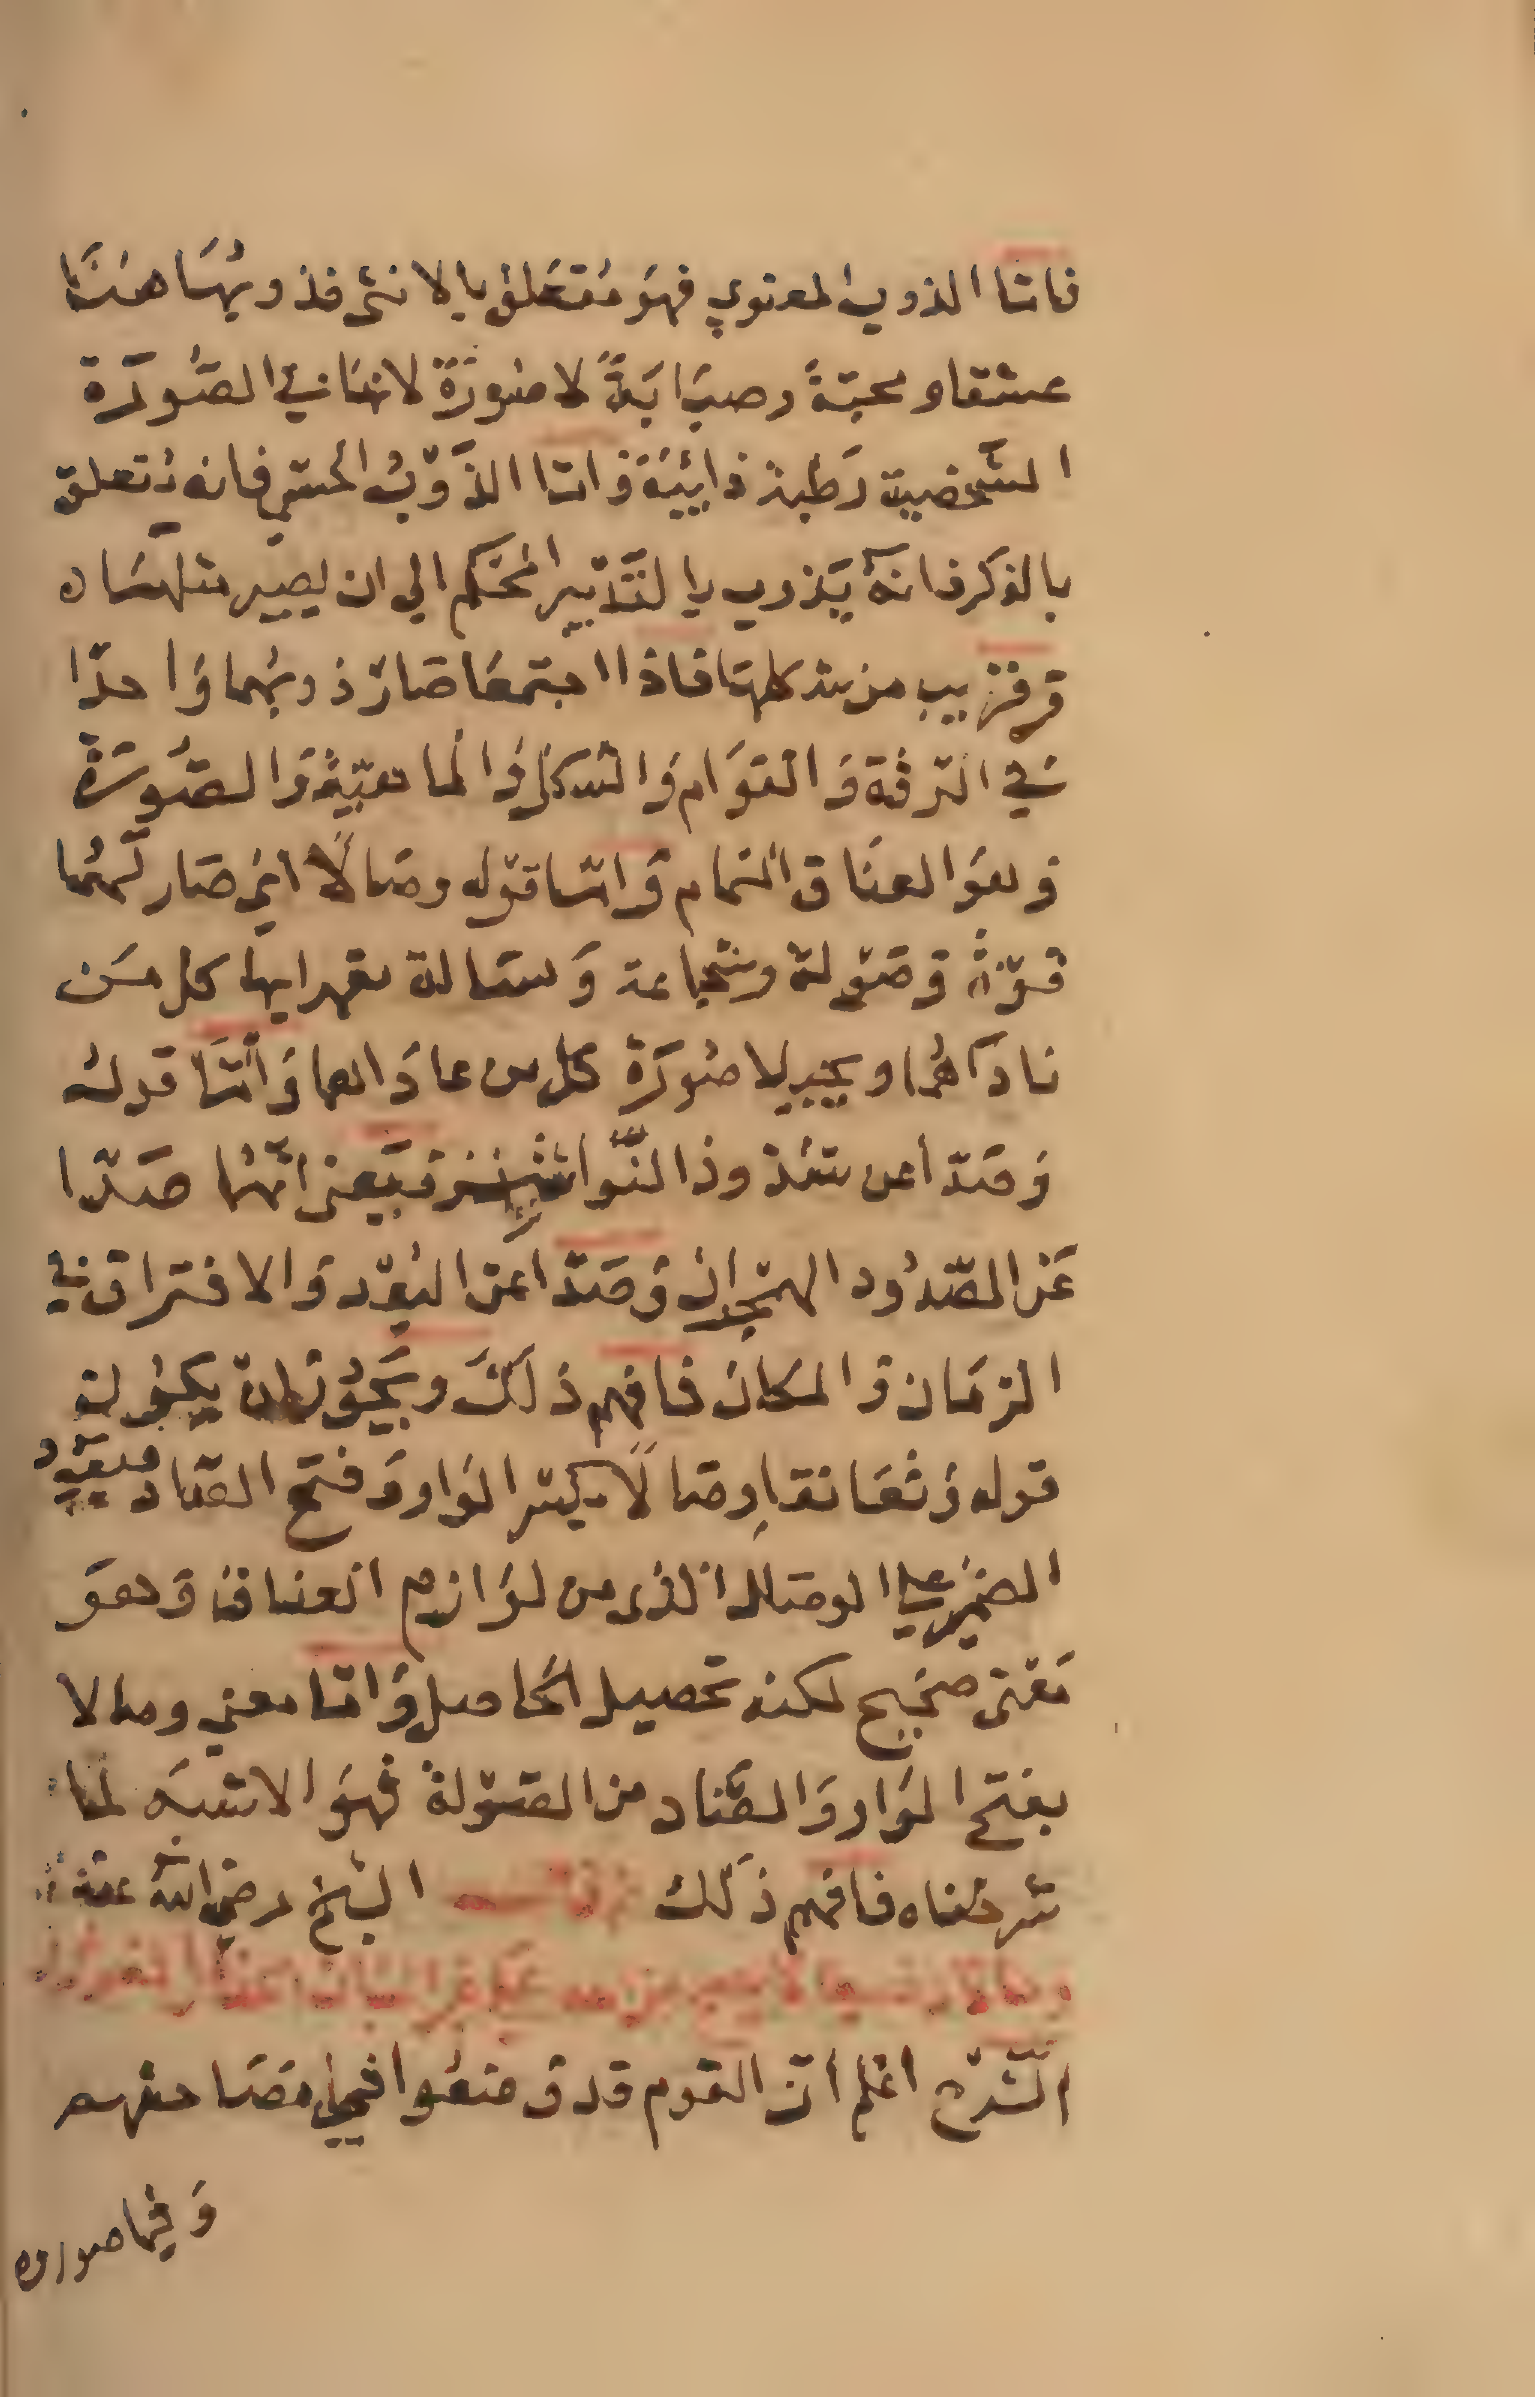 فاما الذوب المعنوي فهو متعلق بالانثى فذوبها هنا
عشقا ومحبة وصبابة لا صورة لانها في الصورة
الشخصية رطبة ذايبة واما الذوب الحسي فانه يتعلق
بالذكر فانه يذوب بالتدبير المحكم الي ان يصير مثلها
وقريب من شكلها فاذا اجتمعا صار ذوبهما واحدا
في الرقة والقوام والشكل والماهية والصورة
وهو العناق التمام واما قوله وصالا اي صار لهما
قوة وصولة وشجاعة وبسالة يقهرا بها كل من
ناداهما ويحيلا صورة كل من عاداهما واما قوله
وصدا عن شذوذ النواشز فيعني انهما صدا
عن الصدود الهجران وصدا عن البعد والافتراق في
الزمان والمكان فافهم ذلك ويجوز ان يكون
قوله وتعانقا وصالا بكسر الواو وفتح الصاد فيعود
الضمير علي الوصال الذي من لوازم العناق وهو
معنى صحيح لكنه تحصيل الحاصل واما معني وصالا
بفتح الواو والصاد من الصولة فهو الاشبه لما
شرحناه فافهم ذلك الشيخ رضي الله عنه
الشرح اعلم ان القوم قد وضعوا في مصاحفهم
وفيما صوروه